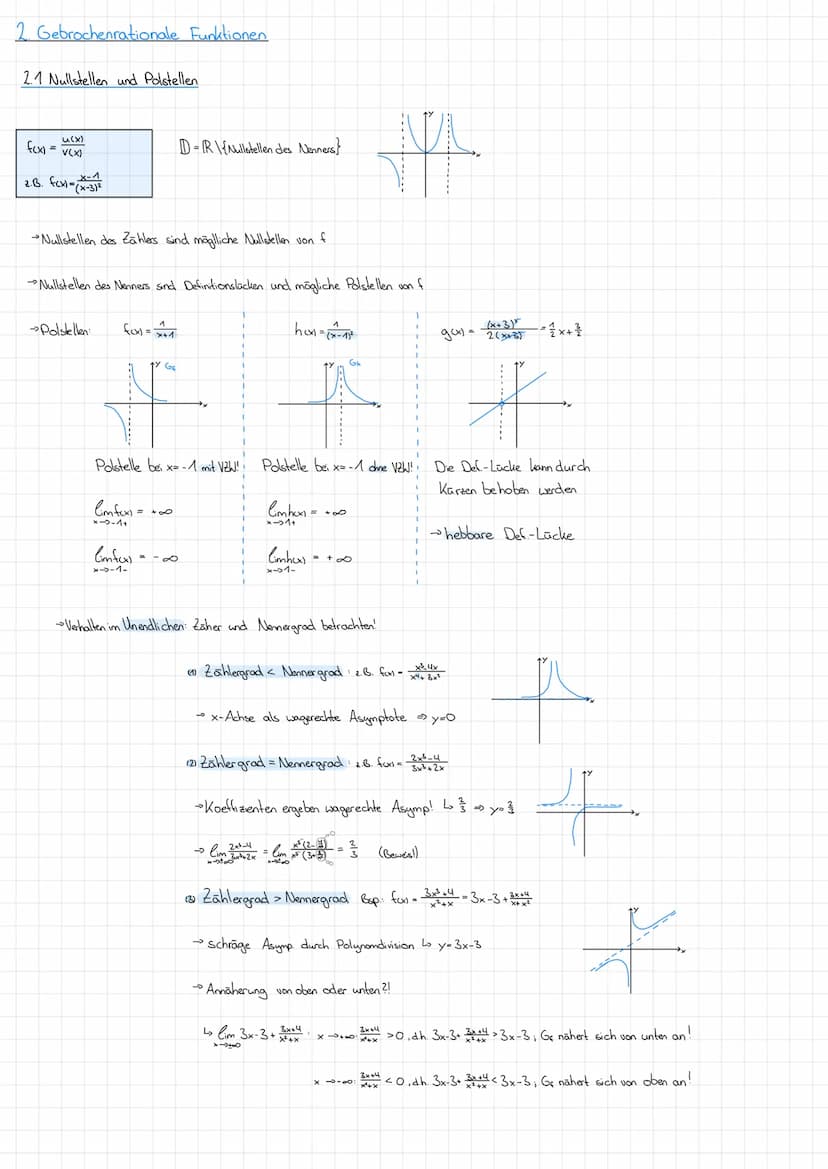 2. Gebrochenrationale Funktionen
2.1 Nullstellen und Polstellen
f(x) = u(x)/v(x)
z.B. f(x) = x-1/(x-3)²
D = ℝ\{Nullstellen des Nenners}
y
x
→ Nullstellen des Zählers sind mögliche Nullstellen von f
→ Nullstellen des Nenners sind Definitionslücken und mögliche Polstellen von f
→ Polstellen: f(x) = 1/x+1 h(x) = 1/(x-1)² g(x) = (x+3)²/2(x+3) = 1/2 x + 3/2
y Gf x
y Gh x
y x
Polstelle bei x = -1 mit VZW! Polstelle bei x = -1 ohne VZW! Die Def.-Lücke kann durch
Kürzen behoben werden
lim f(x) = +∞ lim h(x) = +∞
x→-1+ x→1+
→ hebbare Def.-Lücke
lim f(x) = -∞ lim h(x) = +∞
x→-1- x→1-
→ Verhalten im Unendlichen: Zäher und Nennergrad betrachten!
(1) Zählergrad < Nennergrad : z.B. f(x) =
y
x
→ x-Achse als wagerechte Asymptote ⇒ y=0
(2) Zählergrad = Nennergrad : z.B. f(x) = 2x³-4/3x³+2x
y
x
→ Koeffizienten ergeben wagerechte Asymp! ↳ 2/3 ⇒ y= 2/3
→ lim 2x³-4/3x³+2x = lim = 2/3 (Beweis!)
x→±∞ x→±∞
(3) Zählergrad > Nennergrad Bsp.: f(x) = 3x³+4/x²+x = 3x-3+ 3x+4/x+x²
y
x
→ schräge Asymp durch Polynomdivision ↳ y=3x-3
→ Annäherung von oben oder unten?!
↳ lim 3x-3+ 3x+4/x²+x : x→+∞: 3x+4/x²+x >0, dh 3x-3+ 3x+4/x²+x > 3x-3; Gf nähert sich von unten an!
x→±∞
x→-∞: 3x+4/x²+x <0, dh 3x-3+ 3x+4/x²+x < 3x-3; Gf nähert sich von oben an!